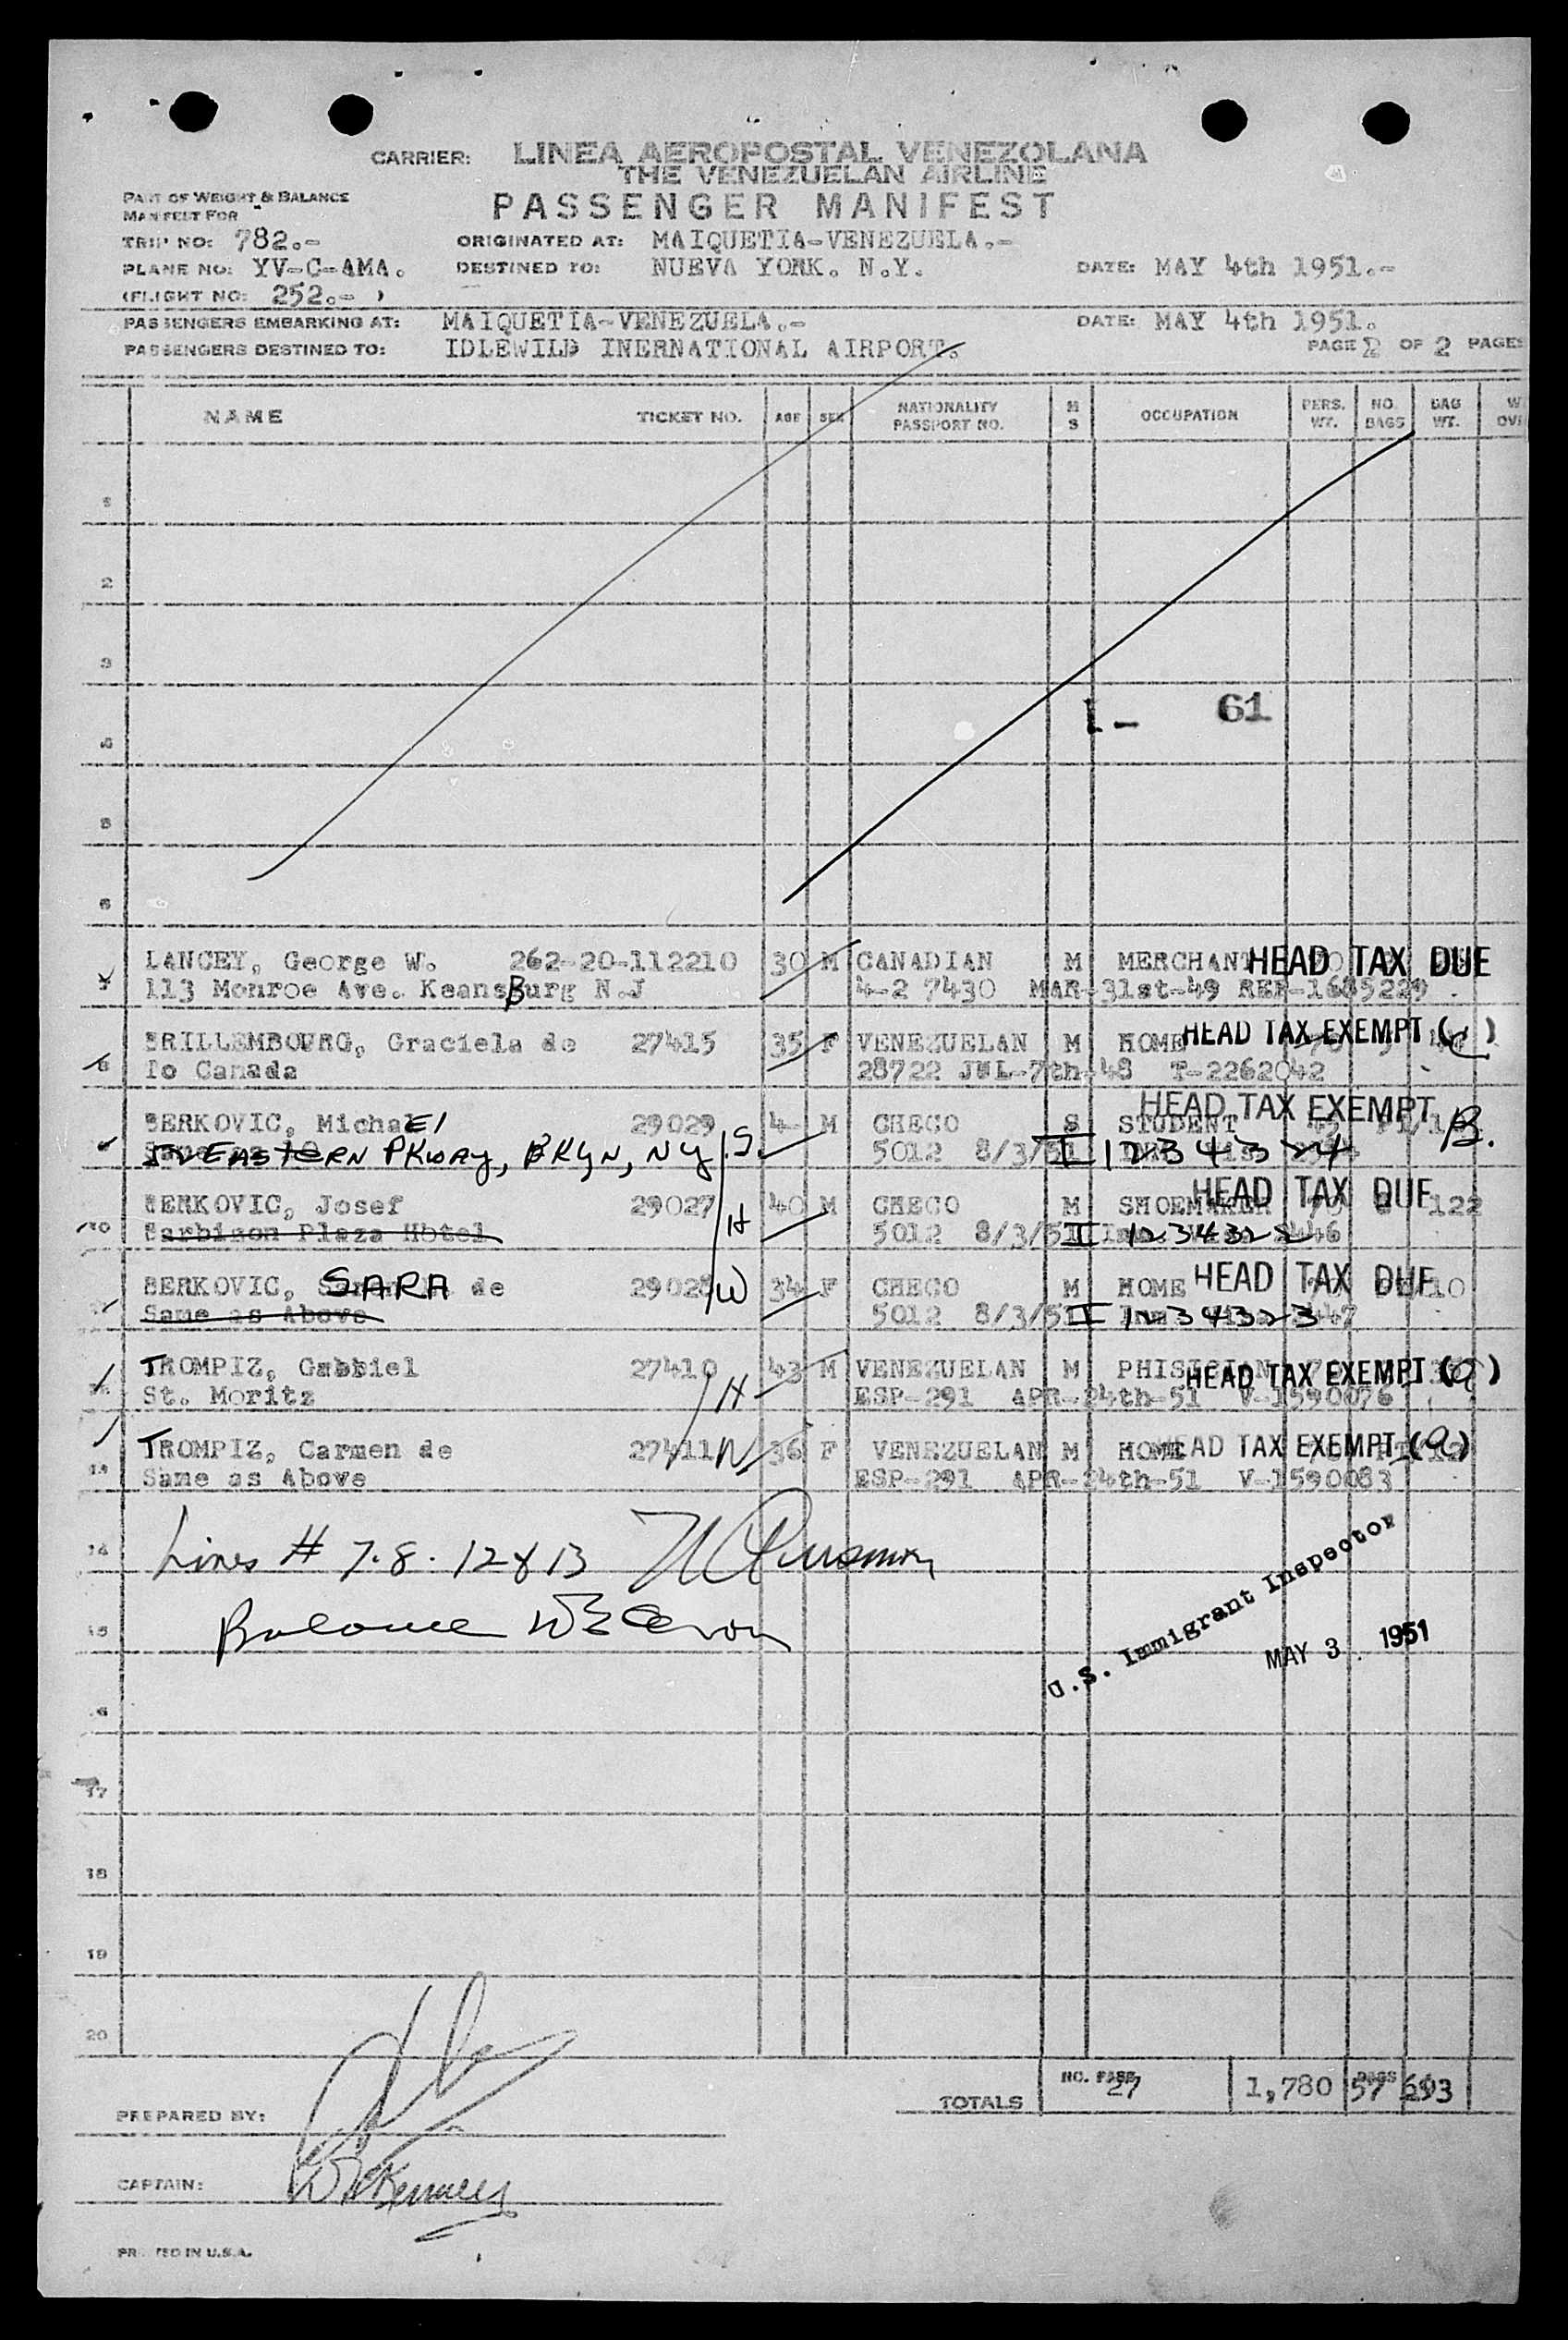 CARRIER: LINEA AEROPOSTAL VENEZOLANA
THE VENEZUELAN AIRLINE
PART OF WEIGHT & BALANCE
MANIFEST FOR
PASSENGER MANIFEST
TRIP NO: 782.- ORIGINATED AT: MAIQUETIA-VENEZUELA.-
PLANE NO: YV-C-AMA. DESTINED TO: NUEVA YORK. N.Y. DATE: MAY 4th 1951.-
(FLIGHT NO: 252.- )
PASSENGERS EMBARKING AT: MAIQUETIA-VENEZUELA.- DATE: MAY 4th 1951.
PASSENGERS DESTINED TO: IDLEWILD INERNATIONAL AIRPORT. PAGE 2 OF 2 PAGES
NAME TICKET NO. AGE SEX NATIONALITY PASSPORT NO. M S OCCUPATION PERS. WT. NO. BAGS BAG WT.
1
2
3
1- 61
4
5
6
LANCEY, George W. 262-20-112210 30 M CANADIAN M MERCHANT HEAD TAX DUE
113 Monroe Ave. KeansBurg N.J 4-2 7430 MAR-31st-49 REP-1685229
BRILLEMBOURG, Graciela de 27415 35 F VENEZUELAN M HOME HEAD TAX EXEMPT (c)
8 To Canada 28722 JUL-7th-48 T-2262042
BERKOVIC, MichaEl 29029 4- M CHECO S STUDENT HEAD TAX EXEMPT B.
EASTERN PKWAY, BKLYN, NY S. 5012 8/3/51 I 1234324
BERKOVIC, Josef 29027 40 M CHECO M SHOEMAKER HEAD TAX DUE 122
10 Barbison Plaza Hotel H 5012 8/3/51 I 1234322
BERKOVIC, SARA de 29028 W 34 F CHECO M HOME HEAD TAX DUE
Same as Above 5012 8/3/51 I 1234323
TROMPIZ, Gabbiel 27410 43 M VENEZUELAN M PHISICIAN HEAD TAX EXEMPT (a)
St. Moritz H ESP-291 APR-24th-51 V-1590076
TROMPIZ, Carmen de 27411 W 36 F VENEZUELAN M HOME HEAD TAX EXEMPT (a)
13 Same as Above ESP-291 APR-24th-51 V-1590083
14 Lines # 7.8. 12 & 13
15 Balance
U.S. Immigrant Inspector
MAY 3 1951
16
17
18
19
20
TOTALS NO. PASS. 27 1,780 BAGS 57 693
PREPARED BY:
CAPTAIN:
PRINTED IN U.S.A.